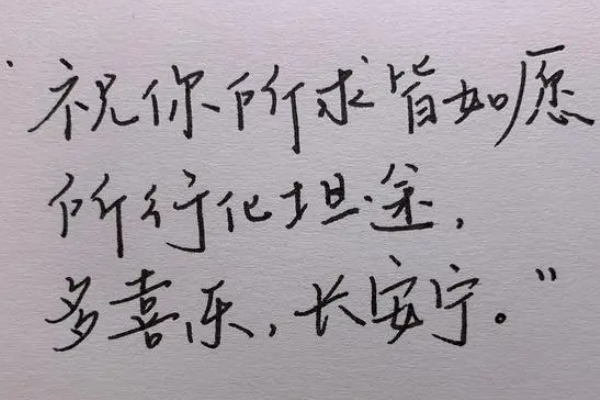 “祝你所求皆如愿
所行化坦途,
多喜乐,长安宁。”